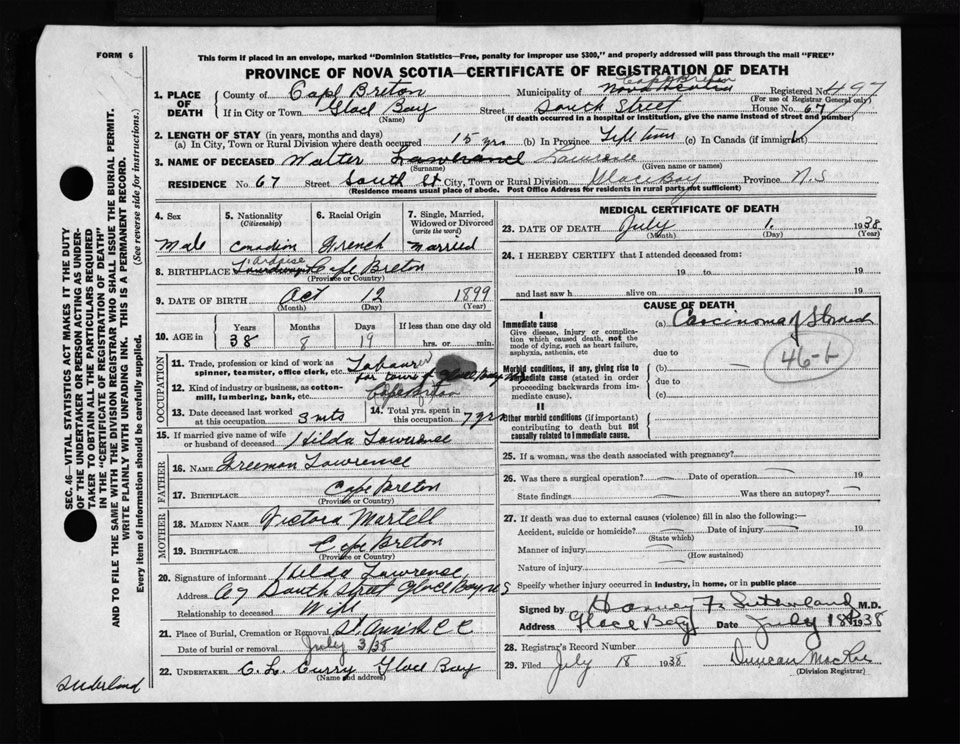 FORM 6
This form if placed in an envelope, marked "Dominion Statistics—Free, penalty for improper use $300," and properly addressed will pass through the mail "FREE"
PROVINCE OF NOVA SCOTIA—CERTIFICATE OF REGISTRATION OF DEATH
SEC. 46—VITAL STATISTICS ACT MAKES IT THE DUTY
OF THE UNDERTAKER OR PERSON ACTING AS UNDER-
TAKER TO OBTAIN ALL THE PARTICULARS REQUIRED
IN THE "CERTIFICATE OF REGISTRATION OF DEATH"
AND TO FILE THE SAME WITH THE DIVISION REGISTRAR WHO SHALL ISSUE THE BURIAL PERMIT.
(See reverse side for instructions.)
WRITE PLAINLY WITH UNFADING INK. THIS IS A PERMANENT RECORD.
Every item of information should be carefully supplied.
1. PLACE OF DEATH
County of Cape Breton
Municipality of Cape Breton Nova Scotia
Registered No. 497
(For use of Registrar General only)
If in City or Town Glace Bay (Name)
Street South Street House No. 67
(If death occurred in a hospital or institution, give the name instead of street and number)
2. LENGTH OF STAY (in years, months and days)
(a) In City, Town or Rural Division where death occurred 15 yrs (b) In Province Life time (c) In Canada (if immigrant)
3. NAME OF DECEASED Walter Lawrence
(Surname) (Given name or names)
RESIDENCE No. 67 Street South St City, Town or Rural Division Glace Bay Province N.S
(Residence means usual place of abode. Post Office Address for residents in rural parts not sufficient)
4. Sex Male
5. Nationality (Citizenship) Canadian
6. Racial Origin French
7. Single, Married, Widowed or Divorced (write the word) Married
8. BIRTHPLACE L'Ardoise Cape Breton
(Province or Country)
9. DATE OF BIRTH Oct 12 1899
(Month) (Day) (Year)
10. AGE in Years 38 Months 8 Days 19 If less than one day old hrs. or min.
OCCUPATION
11. Trade, profession or kind of work as spinner, teamster, office clerk, etc. Labourer
for town of Glace Bay
12. Kind of industry or business, as cotton-mill, lumbering, bank, etc. Cape Breton
13. Date deceased last worked at this occupation 3 mts
14. Total yrs. spent in this occupation 7 yrs
15. If married give name of wife or husband of deceased Hilda Lawrence
FATHER
16. NAME Freeman Lawrence
17. BIRTHPLACE Cape Breton
(Province or Country)
MOTHER
18. MAIDEN NAME Victoria Martell
19. BIRTHPLACE Cape Breton
(Province or Country)
20. Signature of informant Hilda Lawrence
Address 67 South Street Glace Bay N S
Relationship to deceased Wife
21. Place of Burial, Cremation or Removal
Date of burial or removal July 3/38
22. UNDERTAKER C. L. Curry Glace Bay
(Name and address)
Sutherland
MEDICAL CERTIFICATE OF DEATH
23. DATE OF DEATH July 1. 1938
(Month) (Day) (Year)
24. I HEREBY CERTIFY that I attended deceased from:
19 to 19
and last saw h alive on 19
CAUSE OF DEATH
I
Immediate cause
Give disease, injury or complication which caused death, not the mode of dying, such as heart failure, asphyxia, asthenia, etc
(a) Carcinoma of Stomach
due to
46-b
Morbid conditions, if any, giving rise to immediate cause (stated in order proceeding backwards from immediate cause).
(b)
due to
(c)
II
Other morbid conditions (if important) contributing to death but not causally related to immediate cause.
25. If a woman, was the death associated with pregnancy?
26. Was there a surgical operation? Date of operation 19
State findings Was there an autopsy?
27. If death was due to external causes (violence) fill in also the following:—
Accident, suicide or homicide? Date of injury 19
(State which)
Manner of injury
(How sustained)
Nature of injury
Specify whether injury occurred in industry, in home, or in public place
Signed by Harvey F. Sutherland M.D.
Address Glace Bay Date July 18th 1938
28. Registrar's Record Number
29. Filed July 18 1938 Duncan
(Division Registrar)